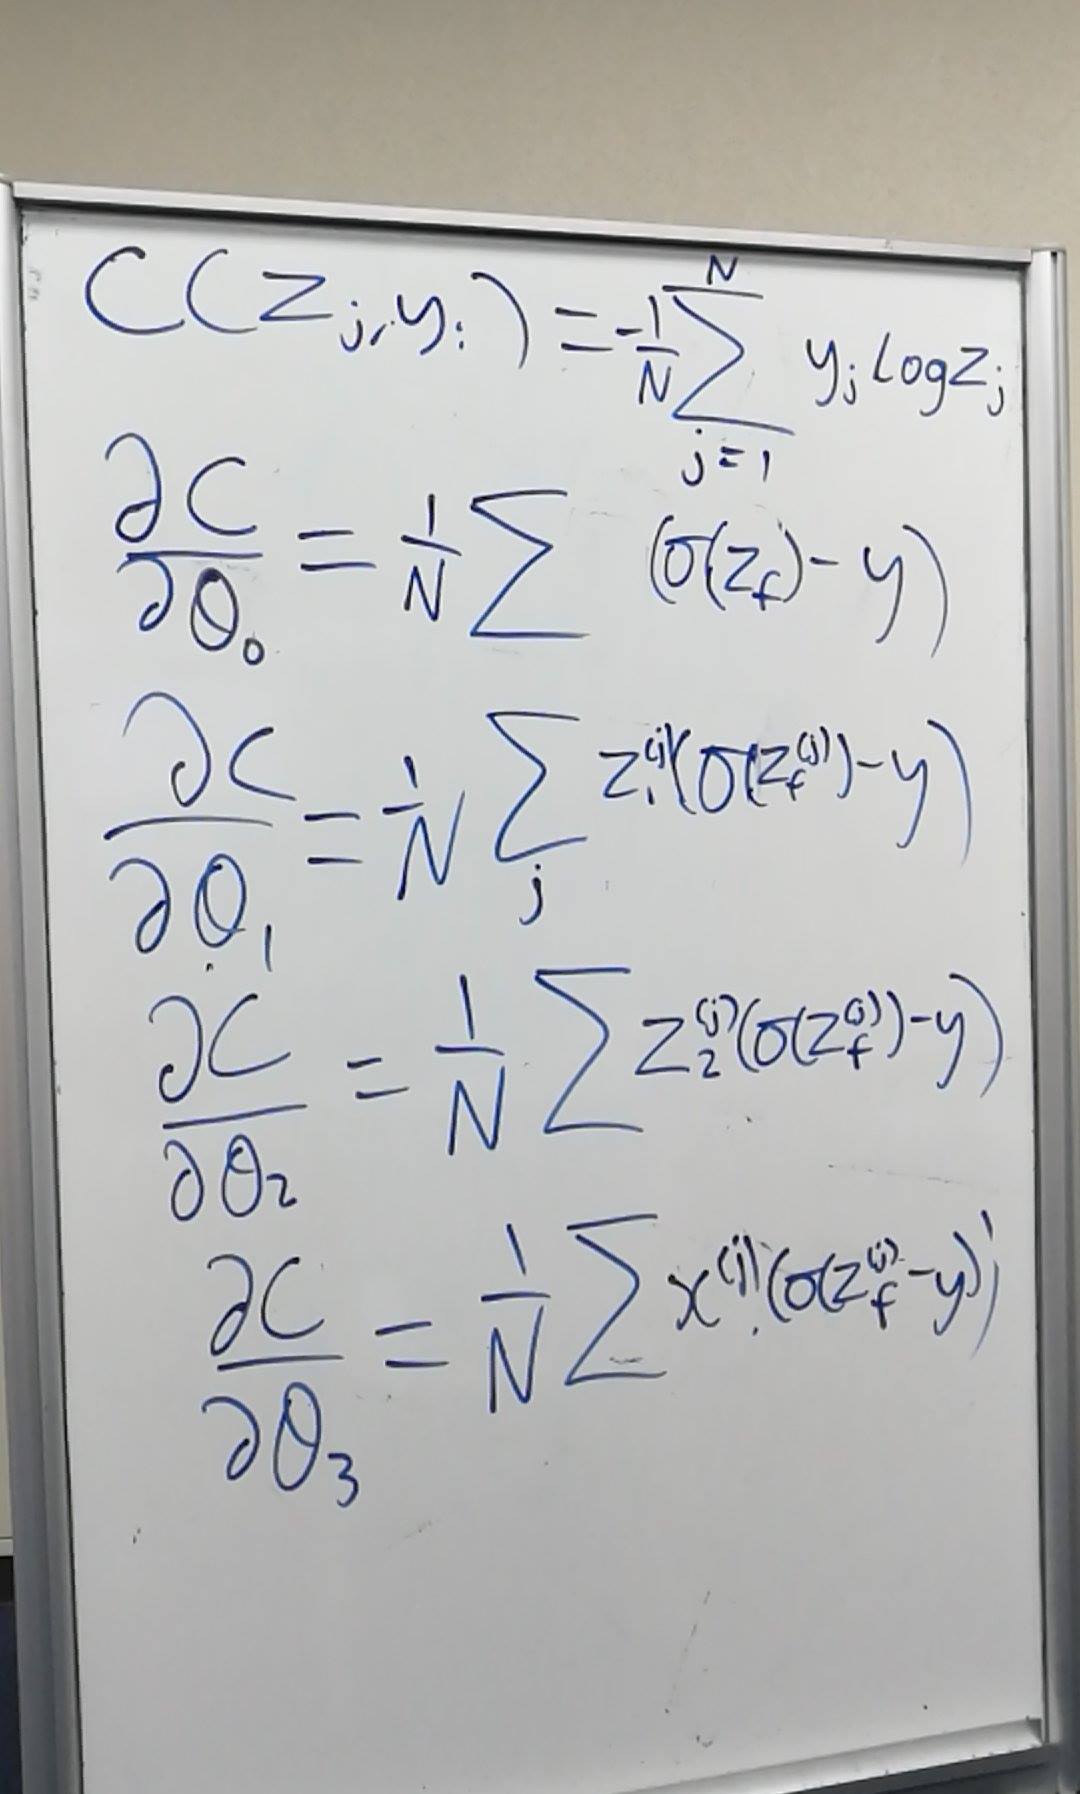 C(z_j, y_i) = -1/N ∑_{j=1}^{N} y_j log z_j
∂C/∂θ_0 = 1/N ∑ (σ(z_f) - y)
∂C/∂θ_1 = 1/N ∑_j z_1^{(j)} (σ(z_f^{(j)}) - y)
∂C/∂θ_2 = 1/N ∑ z_2^{(j)} (σ(z_f^{(j)}) - y)
∂C/∂θ_3 = 1/N ∑ x^{(j)} (σ(z_f^{(j)} - y)